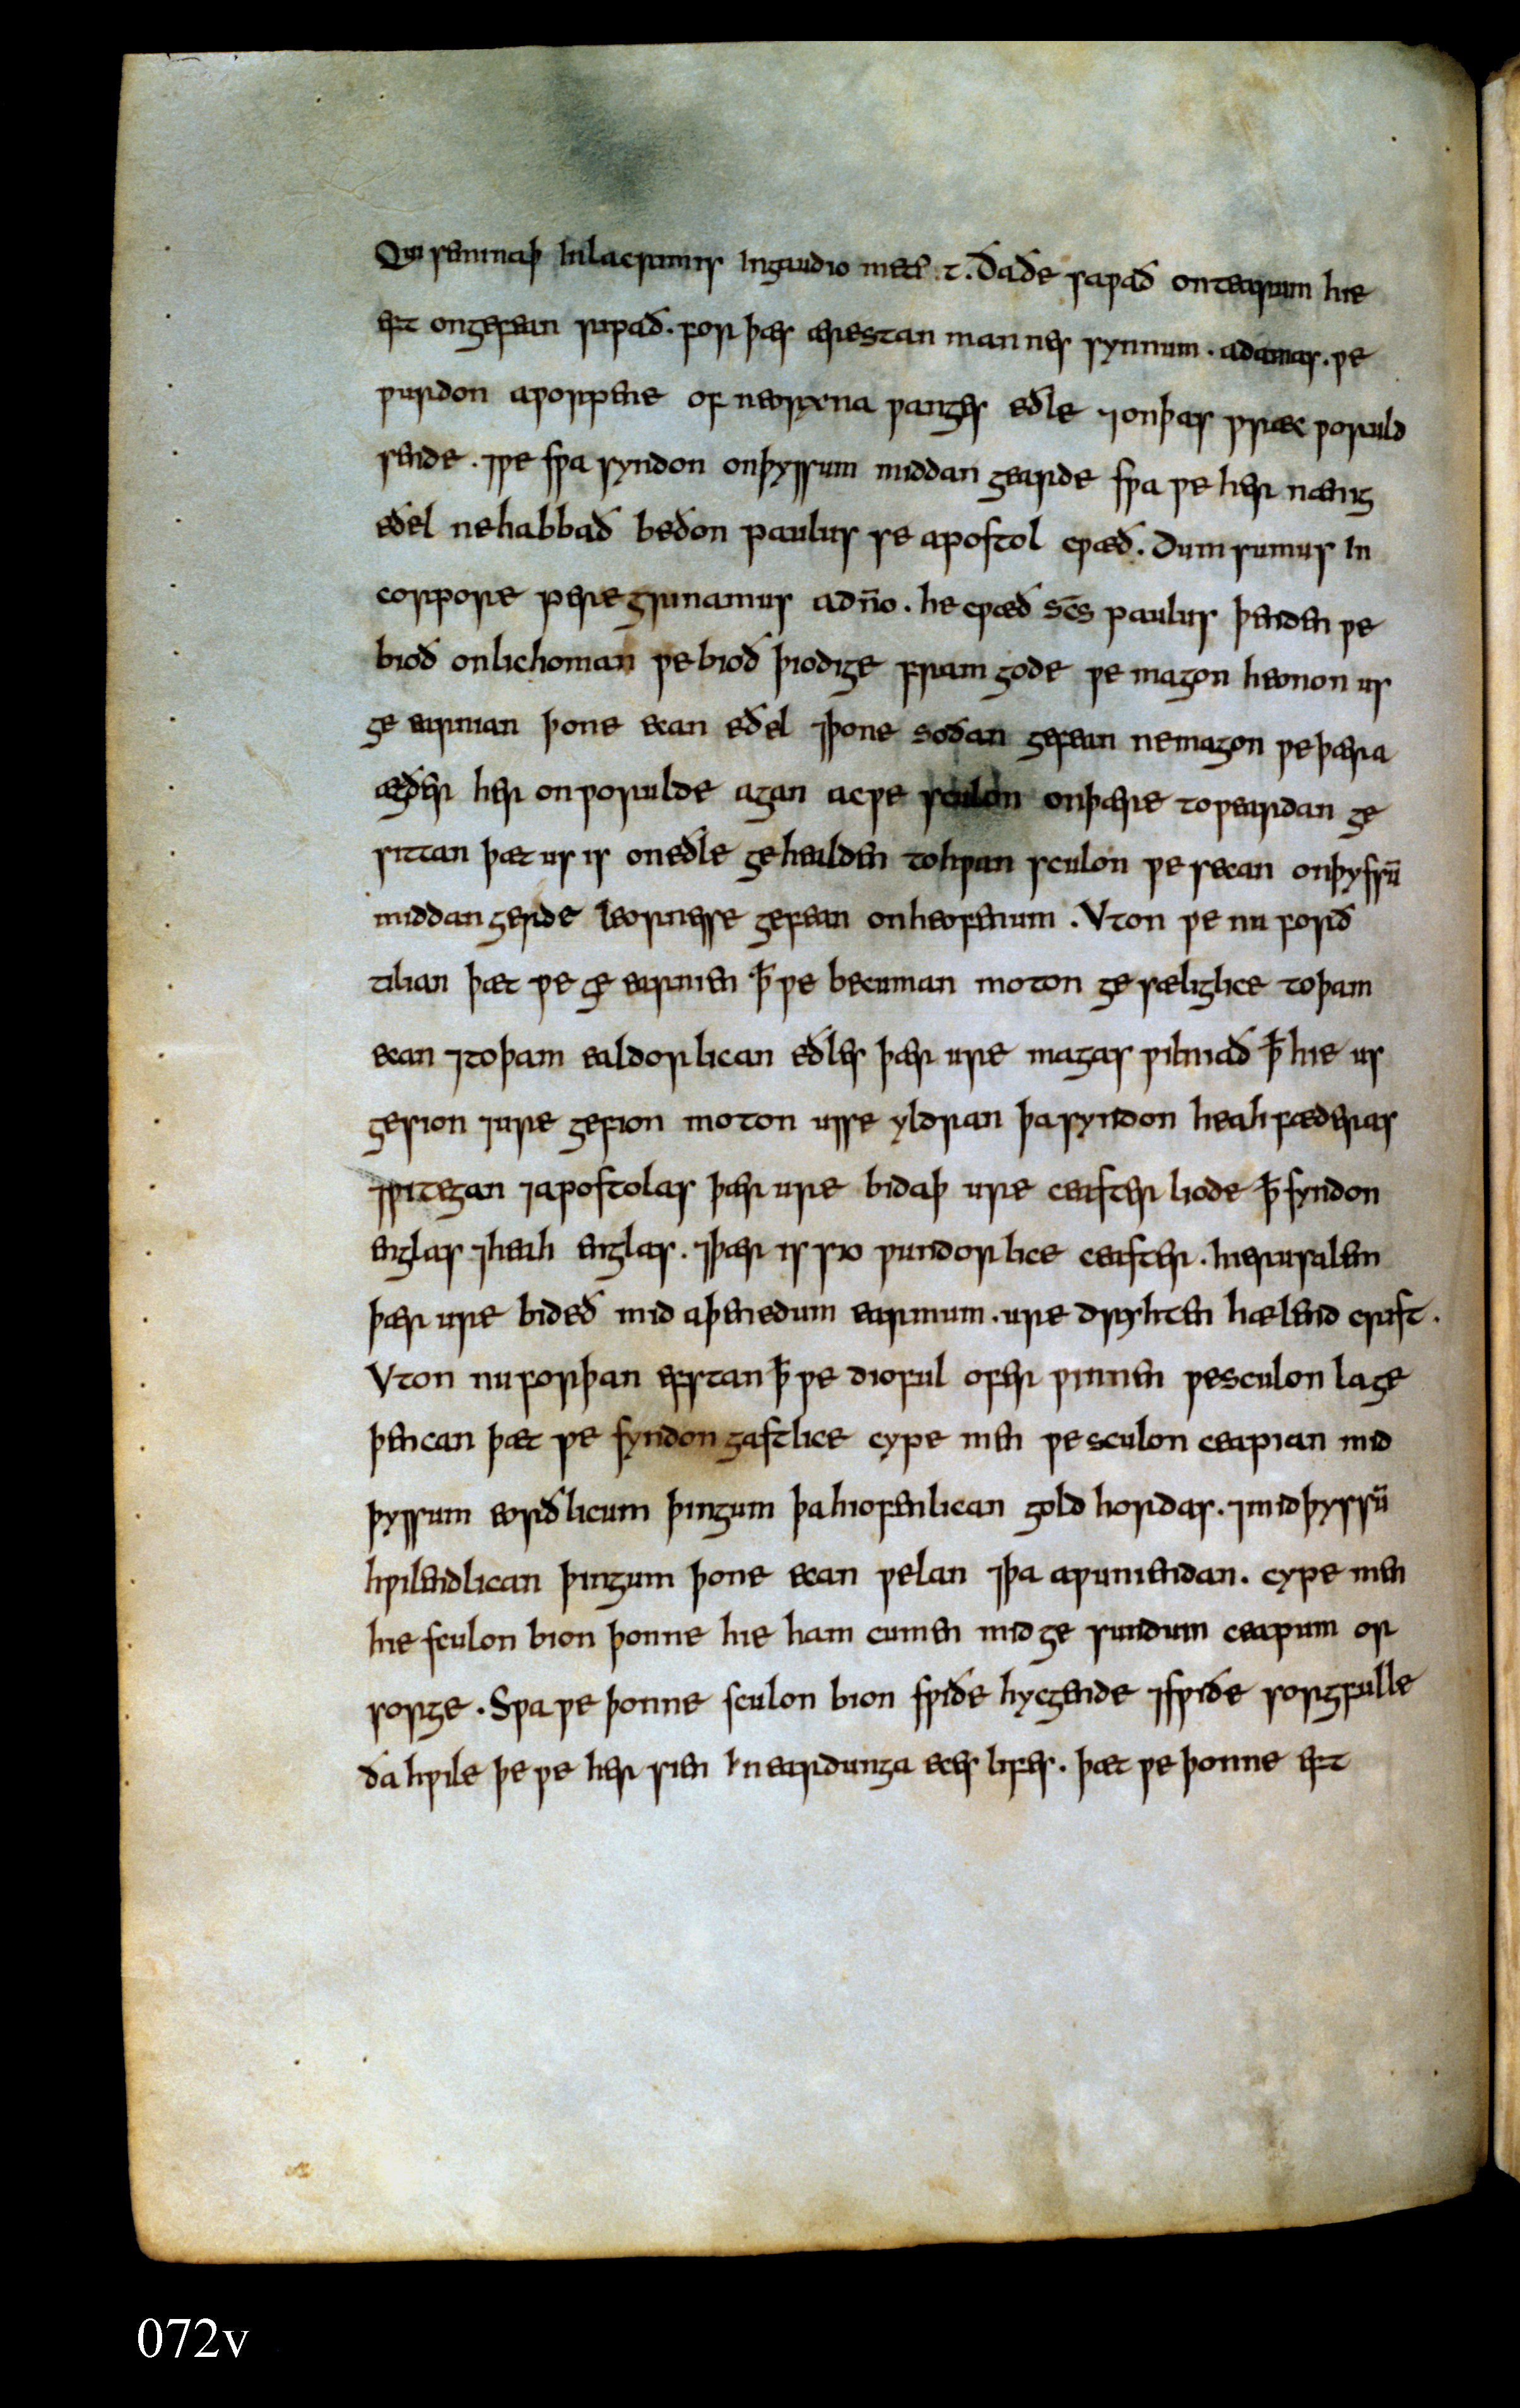 Qui seminaþ in lacrimis in gaudio metēt. ða ðe sapað on tearum hie
eft on gefean ripað. for þæs ærestan mannes synnum. adames. ƿe
ƿurdon aƿorpene of neorxna ƿanges eðle ⁊ on þas ƿræc ƿoruld
sende. ⁊ ƿe sƿa syndon on þyssum middan gearde sƿa ƿe her nænig
eðel ne habbað be ðon paulus se apostol cƿæð. dum sumus in
corpore peregrinamur ad n̄o. he cƿæð sc̄s paulus þenden ƿe
bioð on lichoman ƿe bioð þiodige fram gode ƿe magon heonon us
ge earnian þone ecan eðel ⁊ þone soðan gefean ne magon ƿe þæra
ægðer her on ƿorulde agan ac ƿe sculon on þære toƿeardan ge
sittan þæt us is on eðle gehealden to hƿan sculon ƿe secan on þyssū
middan gerde leornesse gefean on heofenum. Vton ƿe nu forð
tilian þæt ƿe ge earnien ꝥ ƿe becuman moton ge sæliglice to þam
ecan ⁊ to þam ealdorlican eðles þær ure magas ƿilniað ꝥ hie us
gesion ⁊ ure gefion moton usse yldran þa syndon heahfæderas
⁊ ƿitegan ⁊ apostolas þær ure bidaþ ure ceaster liode ꝥ syndon
englas ⁊ heah englas. ⁊ þær is sio ƿundorlice ceaster. hierusalem
þær ure bideð mid aþenedum earmum. ure dryhten hælend crist.
Vton nu forþan efstan ꝥ ƿe dioful ofer ƿinnen ƿe sculon lage
þencan þæt ƿe syndon gastlice cype men ƿe sculon ceapian mid
þyssum eorðlicum þingum þa hiofenlican gold hordas. ⁊ mid þyssū
hƿilendlican þingum þone ecan ƿelan ⁊ þa aƿuniendan. cype men
hie sculon bion þonne hie ham cumen mid ge sundum ceapum or
sorge. Sƿa ƿe þonne sculon bion sƿiðe hycgende ⁊ sƿiðe sorgfulle
ða hƿile þe ƿe her sien in eardunga eces lifes. þæt ƿe þonne eft